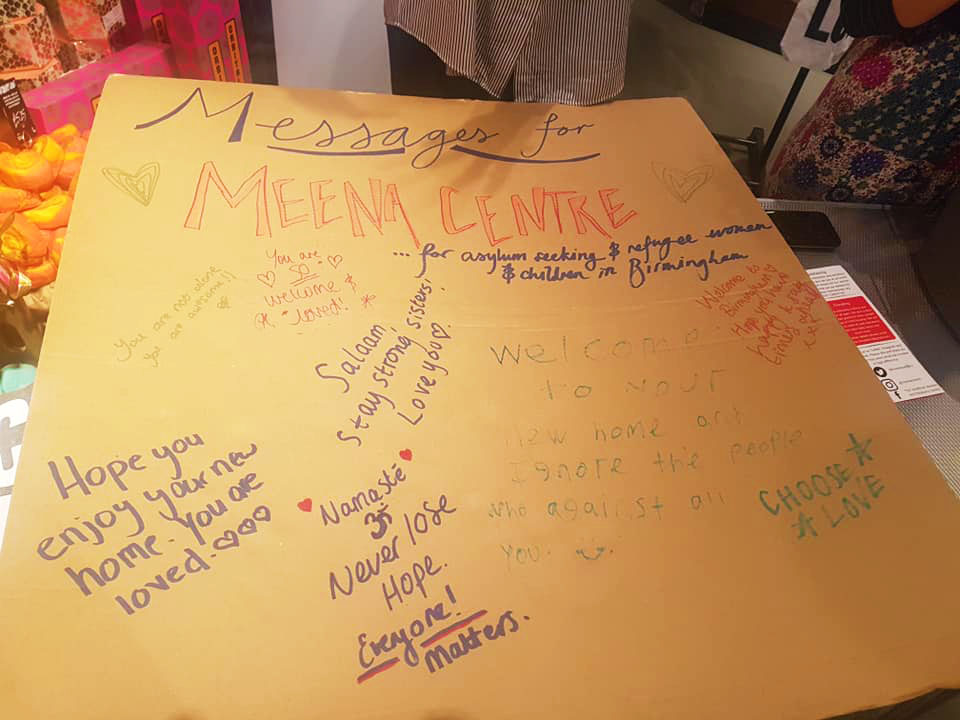 Messages for
MEENA CENTRE
... for asylum seeking & refugee women
& children in Birmingham
You are not alone
you are awesome!!
You are
SO
welcome &
loved!
Salaam
Stay strong, sisters!
Love you
Welcome to
Birmingham
Hope you have
happy &
times
Welcome
to your
New home and
Ignore the people
who against all
you.
Hope you
enjoy your new
home. You are
loved.
Namaste
ॐ
Never lose
Hope.
Everyone!
Matters.
CHOOSE
LOVE